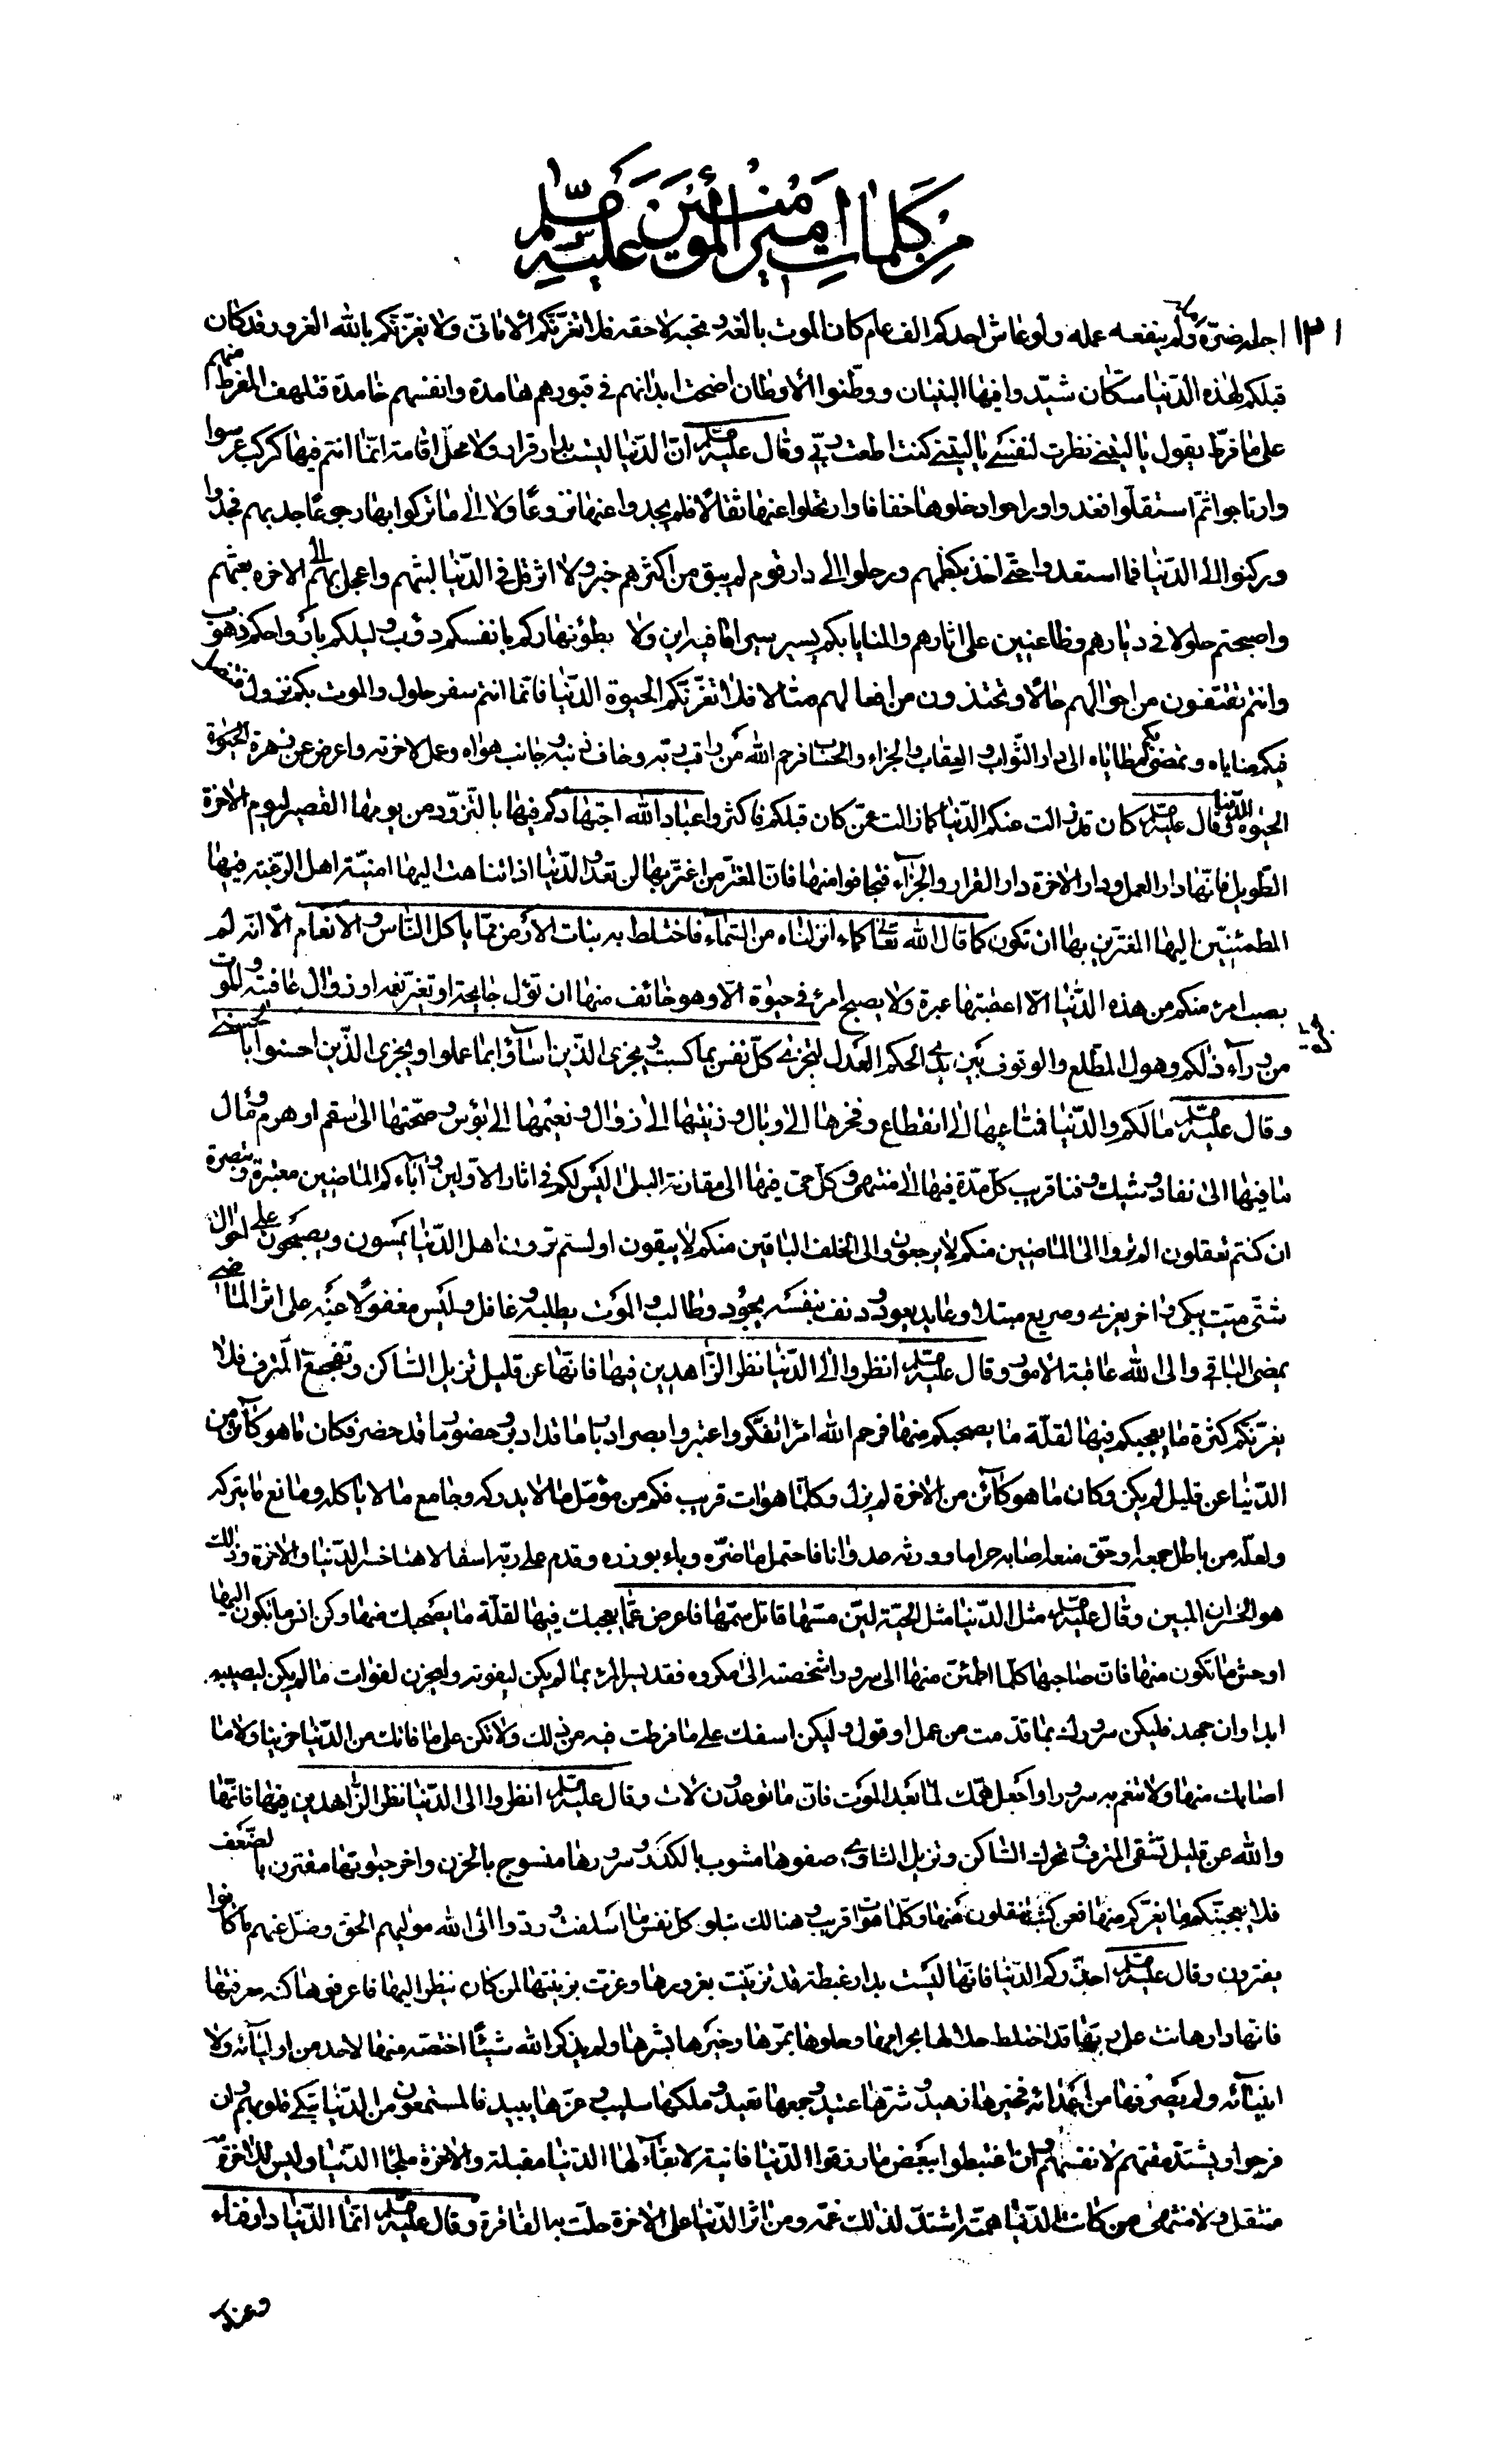 من كلمات امير المؤمنين صلم عليه
١٣١ اجله ضرّه امله ولم ينفعه عمله ولو عاش احدكم الف عام كان الموت بالغه ونحبه لاحقه فلا تغرّنّكم الاماني ولا يغرّنّكم بالله الغرور وقد كان
قبلكم لهذه الدّنيا سكّان شيّدوا فيها البنيان ووطّنوا الاوطان اضحت ابدانهم في قبورهم هامدة وانفسهم خامدة فتلهف المفرط منهم
على ما فرط يقول يا ليتني نظرت لنفسي يا ليتني كنت اطعت ربّي وقال عليه صلم انّ الدّنيا ليست بدار قرار ولا محلّ اقامة انّما انتم فيها كركب عرسوا
وارتاحوا ثمّ استقلّوا فغدوا وراحوا دخلوها خفافا وارتحلوا عنها ثقالًا فلم يجدوا عنها نزوعًا ولا الى ما تركوا بها رجوعًا جد بهم فجدوا
وركنوا الى الدّنيا فما استعدوا حتّى اخذ بكظمهم ورحلوا الى دار قوم لم يبق من اكثرهم خبر ولا اثر قل في الدّنيا لبثهم واعجل بهم الى الاخرة بعثهم
واصبحتم حلولا في ديارهم وظاعنين على اثارهم والمنايا بكم يسير سيرا ما فيه اين ولا بطؤ نهاركم بانفسكم دؤب وليلكم بارواحكم ذهوب
وانتم تقتفون من احوالهم حالًا وتحتذون من افعالهم مثالا فلا تغرّنّكم الحيوة الدّنيا فانّما انتم سفر حلول والموت بكم نزول فتنتضل
فيكم مناياه وتمضي بكم مطاياه الى دار الثّواب والعقاب والجزاء والحساب فرحم الله من راقب ربّه وخاف ذنبه وجانب هواه وعمل لاخرته واعرض عن زهرة الحيوة
الحيوة الدّنيا وقال عليه صلم كان قد زالت عنكم الدّنيا كما زالت عمّن كان قبلكم فاكثروا عباد الله اجتهادكم فيها بالتّزوّد من يومها القصير ليوم الاخرة
الطّويل فانّها دار العمل ودار الاخرة دار القرار والجزاء فتجافوا عنها فانّ المغترّ من اغترّ بها لن تعد الدّنيا اذا تناهت اليها امنيّة اهل الرّغبة فيها
المطمئنّين اليها المغترّين بها ان تكون كما قال الله تعالى كماء انزلناه من السّماء فاختلط به نبات الارض ممّا ياكل النّاس والانعام الّا انّه لم
يصب امرء منكم من هذه الدّنيا الّا اعقبتها عبرة ولا يصبح امرء في حيوة الّا وهو خائف منها ان تؤل جايحة او تغير نعمة او زوال عافية والموت
من وراء ذلكم وهول المطّلع والوقوف بين يدي الحكم العدل لتجزى كلّ نفس بما كسبت ويجزى الّذين اساؤا بما عملوا ويجزى الّذين احسنوا بالحسنى
وقال عليه صلم ما لكم والدّنيا فمتاعها الى انقطاع وفخرها الى وبال وزينتها الى زوال ونعيمها الى بؤس وصحّتها الى سقم او هرم ومآل
ما فيها الى نفاد وشيك وفنا قريب كلّ مدّة فيها الى منتهى وكلّ حيّ فيها الى مقارنة البلى اليس لكم في اثار الاوّلين وآباءكم الماضين معتبرة وتبصرة
ان كنتم تعقلون الم تروا الى الماضين منكم لا يرجعون والى الخلف الباقين منكم لا يبقون اولستم ترون اهل الدّنيا يمسون ويصبحون على احوال
شتّى ميّت يبكى واخر يعزى وصريع مبتلا وعايد يعود ودنف بنفسه يجود وطالب والموت يطلبه وغافل وليس مغفولًا عنه على اثر الماضي
يمضي الباقي والى الله عاقبة الامور وقال عليه صلم انظروا الى الدّنيا نظر الزّاهدين فيها فانّها عن قليل تزيل السّاكن وتفجع المترف فلا
يغرّنّكم كثرة ما يعجبكم فيها لقلّة ما يصحبكم منها فرحم الله امرءا تفكّر واعتبر وابصر ادبار ما قد ادبر وحضور ما قد حضر فكان ما هو كائن من
الدّنيا عن قليل لم يكن وكان ما هو كائن من الاخرة لم يزل وكلّما هو ات قريب فكم من مؤمّل ما لا يدركه وجامع ما لا ياكله ومانع ما يتركه
ولعلّه من باطل جمعه او حقّ منعه اصابه حراما وورثه عدوانا فاحتمل ما ضرّه وباء بوزره وقدم على ربّه اسفا لاهفا خسر الدّنيا والاخرة وذلك
هو الخسران المبين وقال عليه صلم مثل الدّنيا مثل الحيّة ليّن مسّها قاتل سمّها فاعرض عمّا يعجبك فيها لقلّة ما يصحبك منها وكن انس ما يكون اليها
اوحش ما تكون منها فانّ صاحبها كلّما اطمئنّ منها الى سرور اشخصته الى مكروه فقد يسر المرء بما لم يكن ليفوته وليحزن لفوات ما لم يكن ليصيبه
ابدا وان جهد فليكن سرورك بما قدّمت من عمل او قول وليكن اسفك على ما فرطت فيه من ذلك ولا تكن على ما فاتك من الدّنيا حزينا ولا ما
اصابك منها ولا تنعم به سرورا واجعل همّك لما بعد الموت فانّ ما توعدون لات وقال عليه صلم انظروا الى الدّنيا نظر الزّاهدين فيها فانّها
والله عن قليل تشقى المترف وتحرك السّاكن وتزيل الثاوي صفوها مشوب بالكدد وسرورها منسوج بالحزن واخر حيوتها مقترن بالضّعف
فلا يعجبنّكم ما يغرّكم منها فعن كثب تنقلون عنها وكلّما هو ات قريب وهنالك تبلو كل نفس ما اسلفت وردّوا الى الله موليهم الحق وضلّ عنهم ما كانوا
يفترون وقال عليه صلم احذّركم الدّنيا فانّها ليست بدار غبطة قد تزيّنت بغرورها وغرّت بزينتها لمن كان ينظر اليها فاعرفوها كنه معرفتها
فانّها دار هانت على ربّها قد اختلط حلالها بحرامها وحلوها بمرّها وخيرها بشرّها ولم يذكر الله شيئًا اختصّه منها لاحد من اوليائه ولا
انبيائه ولم يصرفها من اعدائه فخيرها زهيد وشرّها عتيد وجمعها نفيد وملكها سليب وعزّها يبيد فالمستمتعون من الدّنيا تبكي قلوبهم وان
فرحوا ويشتدّ مقتهم لانفسهم وان اغتبطوا ببعض ما رزقوا الدّنيا فانية لا بقاء لها الدّنيا مقبلة والاخرة ملجأ الدّنيا وليس للاخرة
منتقل ولا منتهى من كانت الدّنيا همّته اشتدّ لذلك غمّه ومن اثر الدّنيا على الاخرة حلّت به الفاقرة وقال عليه صلم انّما الدّنيا دار فناء
وعناء